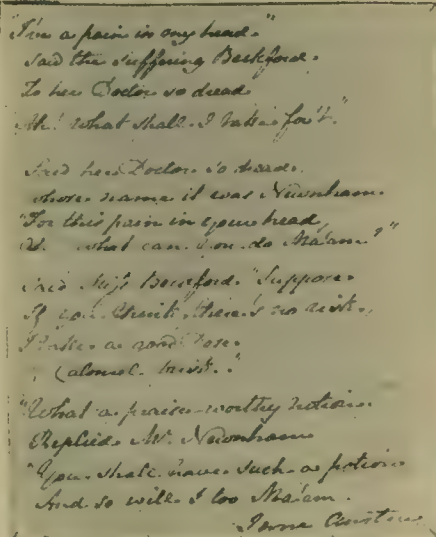 "I've a pain in my head"
Said the suffering Beckford
To her Doctor so dread
Ah! what shall I take for't."
Said her Doctor so dread
whose name it was Newnham
"For this pain in your head
Ah what can you do Ma'am?"
Said Miss Beckford. "Suppose
If you think there's no risk,
I take a good Dose
Calomel brisk."
"What a praise-worthy notion
Replied Mr. Newnham
"You shall have such a potion
And so will I too Ma'am.
Jane Austen